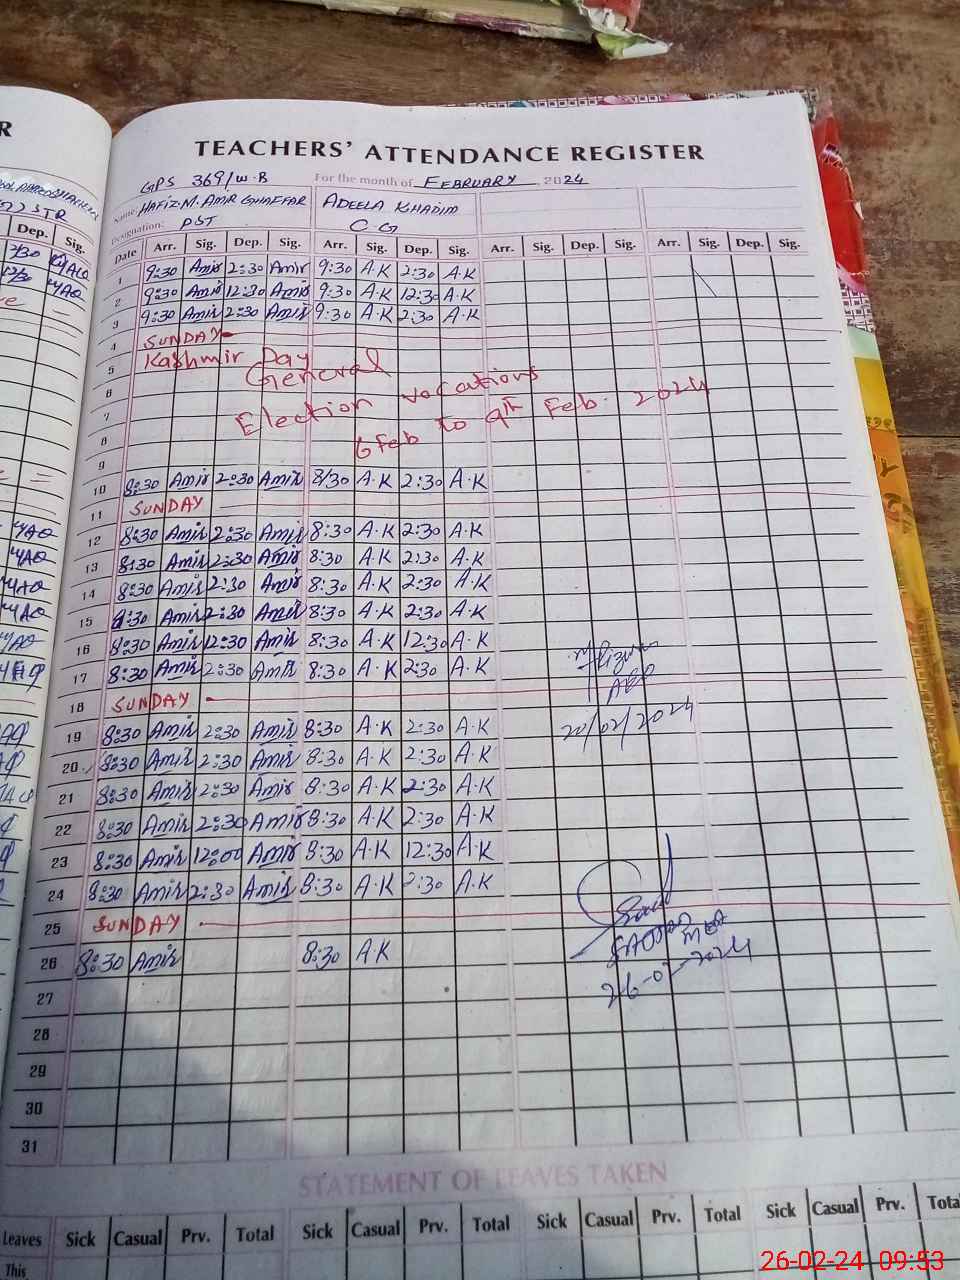 R
TEACHERS' ATTENDANCE REGISTER
GPS 369/W.B For the month of FEBRUARY 2024
Name: HAFIZ M. AMIR GHAFFAR ADEELA KHADIM
Designation: PST CG
Dep. Sig.
Date Arr. Sig. Dep. Sig. Arr. Sig. Dep. Sig. Arr. Sig. Dep. Sig. Arr. Sig. Dep. Sig.
1 9:30 Amir 2:30 Amir 9:30 A.K 2:30 A.K
2 9:30 Amir 12:30 Amir 9:30 A.K 12:30 A.K
3 9:30 Amir 2:30 Amir 9:30 A.K 2:30 A.K
4 SUNDAY
5 Kashmir Day
General
6
Election vocations
7
6 Feb to 9th Feb. 2024
8
9
10 8:30 Amir 2:30 Amir 8/30 A.K 2:30 A.K
11 SUNDAY
12 8:30 Amir 2:30 Amir 8:30 A.K 2:30 A.K
13 8:30 Amir 2:30 Amir 8:30 A.K 2:30 A.K
14 8:30 Amir 2:30 Amir 8:30 A.K 2:30 A.K
15 8:30 Amir 2:30 Amir 8:30 A.K 2:30 A.K
16 8:30 Amir 12:30 Amir 8:30 A.K 12:30 A.K
17 8:30 Amir 2:30 Amir 8:30 A.K 2:30 A.K
AEO
18 SUNDAY
22/02/2024
19 8:30 Amir 2:30 Amir 8:30 A.K 2:30 A.K
20 8:30 Amir 2:30 Amir 8:30 A.K 2:30 A.K
21 8:30 Amir 2:30 Amir 8:30 A.K 2:30 A.K
22 8:30 Amir 2:30 Amir 8:30 A.K 2:30 A.K
23 8:30 Amir 12:00 Amir 8:30 A.K 12:30 A.K
24 8:30 Amir 2:30 Amir 8:30 A.K 2:30 A.K
25 SUNDAY
MEA
26 8:30 Amir 8:30 A.K
26-02-2024
27
28
29
30
31
STATEMENT OF LEAVES TAKEN
Leaves Sick Casual Prv. Total Sick Casual Prv. Total Sick Casual Prv. Total Sick Casual Prv. Total
This
26-02-24 09:53